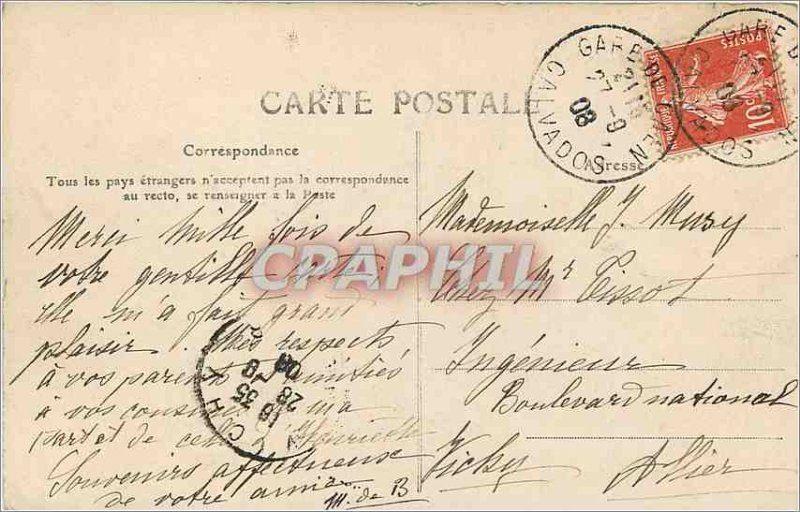 CARTE POSTALE
Correspondance
Tous les pays étrangers n'acceptent pas la correspondance
au recto, se renseigner a la Poste
Adresse
Merci mille fois de
votre gentille
elle m'a fait grand
plaisir. Mes respects
à vos parents amitiés
à vos cousines ma
part et de celle d'Henriette
Souvenirs affectueux
de votre amie
M. de B
Mademoiselle J. Mury
Chez Mr Tissot
Ingénieur
Boulevard national
Vichy Allier
GARE DE CAEN
CALVADOS
27 -9
08
POSTES
10c
18 35
28
VICHY
CPAPHIL